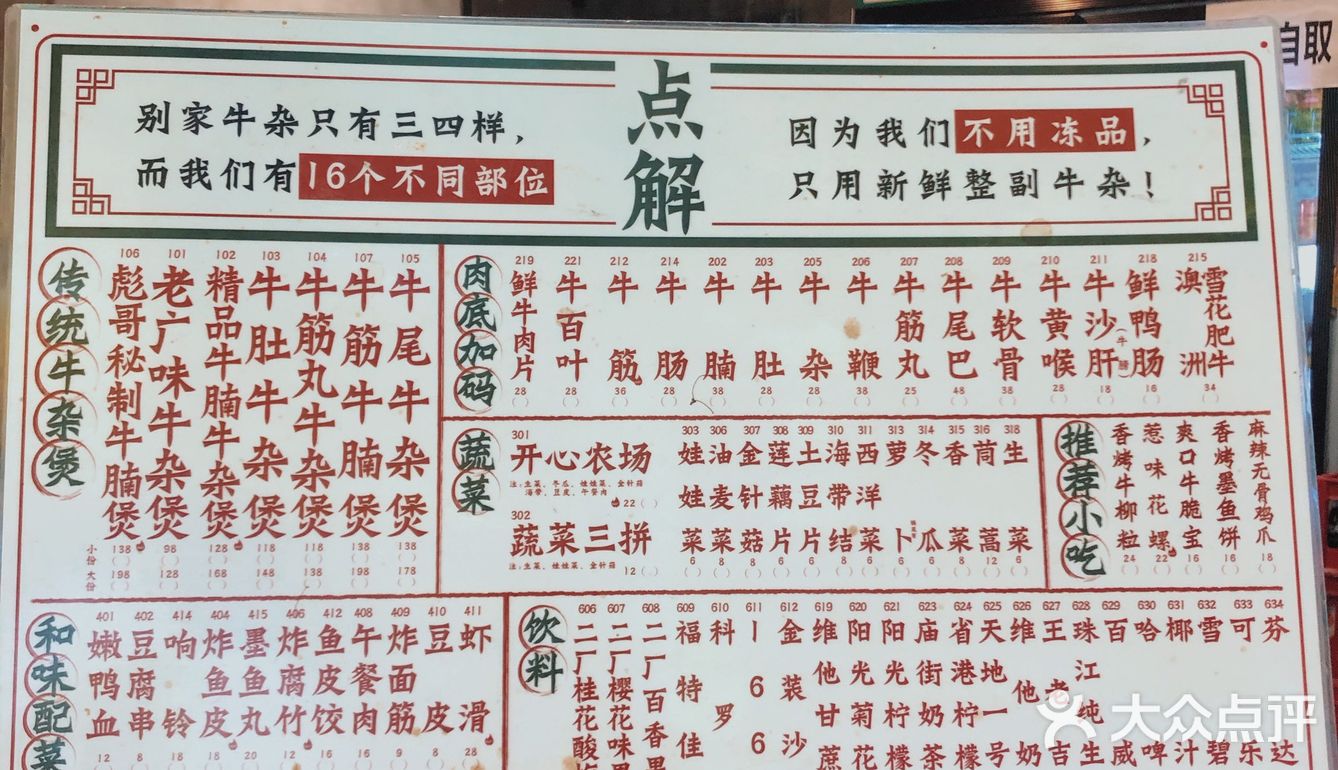 自取
点解
别家牛杂只有三四样，
而我们有16个不同部位
因为我们不用冻品，
只用新鲜整副牛杂！
传统牛杂煲
106 彪哥秘制牛腩煲 138 198
101 老广味牛杂煲 98 128
102 精品牛腩牛杂煲 128 168
103 牛肚牛杂煲 118 148
104 牛筋丸牛杂煲 118 138
107 牛筋牛腩煲 138 198
105 牛尾牛杂煲 138 178
小份
大份
肉底加码
219 鲜牛肉片 28
221 牛百叶 28
212 牛筋 36
214 牛肠 28
202 牛腩 38
203 牛肚 28
205 牛杂 28
206 牛鞭 38
207 牛筋丸 25
208 牛尾巴 48
209 牛软骨 38
210 牛黄喉 28
211 牛沙肝 18
218 鲜鸭肠 16
215 澳洲雪花肥牛 34
蔬菜
301 开心农场
22
302 蔬菜三拼
注:生菜、娃娃菜、金针菇
12
303 娃娃菜 6
306 油麦菜 8
307 金针菇 8
308 莲藕片 6
309 土豆片 6
310 海带结 6
311 西洋菜 8
313 萝卜 6
314 冬瓜 6
315 香菜 8
316 茼蒿 12
318 生菜 6
推荐小吃
香烤牛柳粒 24
葱味花螺 22
爽口牛脆宝 16
香烤墨鱼饼 16
麻辣无骨鸡爪 18
和味配菜
401 嫩鸭血 12
402 豆腐串 8
414 响铃 18
404 炸鱼皮 18
415 墨鱼丸 20
406 炸腐竹 12
412 鱼皮饺 16
408 午餐肉 16
409 炸面筋 9
410 豆皮 8
411 虾滑 28
饮料
606 二厂桂花酸
607 二厂樱花味
608 二厂百香果
609 福特佳
610 科罗
611 1 6 6
612 金装沙
619 维他甘蔗
620 阳光菊花
621 阳光柠檬
623 庙街奶茶
624 省港柠檬
625 天地一号
626 维他奶
627 王老吉
628 珠江纯生
629 百威
630 哈啤
631 椰汁
632 雪碧
633 可乐
634 芬达
大众点评